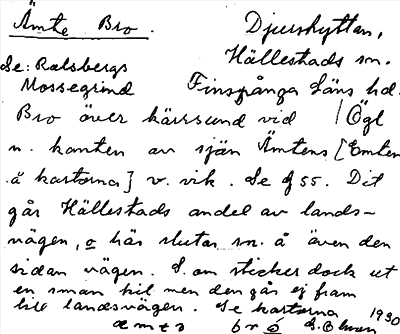 Ämte Bro.
Djurshyttan,
Hällestads sn.
Se: Ralsbergs
Mossegrind
Finspånga Läns hd.
Bro över kärrsund vid / Ögl
n. kanten av sjön Ämtens [Emten
å kartorna] v. vik. Se g 55. Dit
går Hällestads andel av lands-
vägen, o här slutar sn. å även den
sidan vägen. S. om sticker dock ut
en smån kil men den går ej fram
till landsvägen. Se kartorna 1930